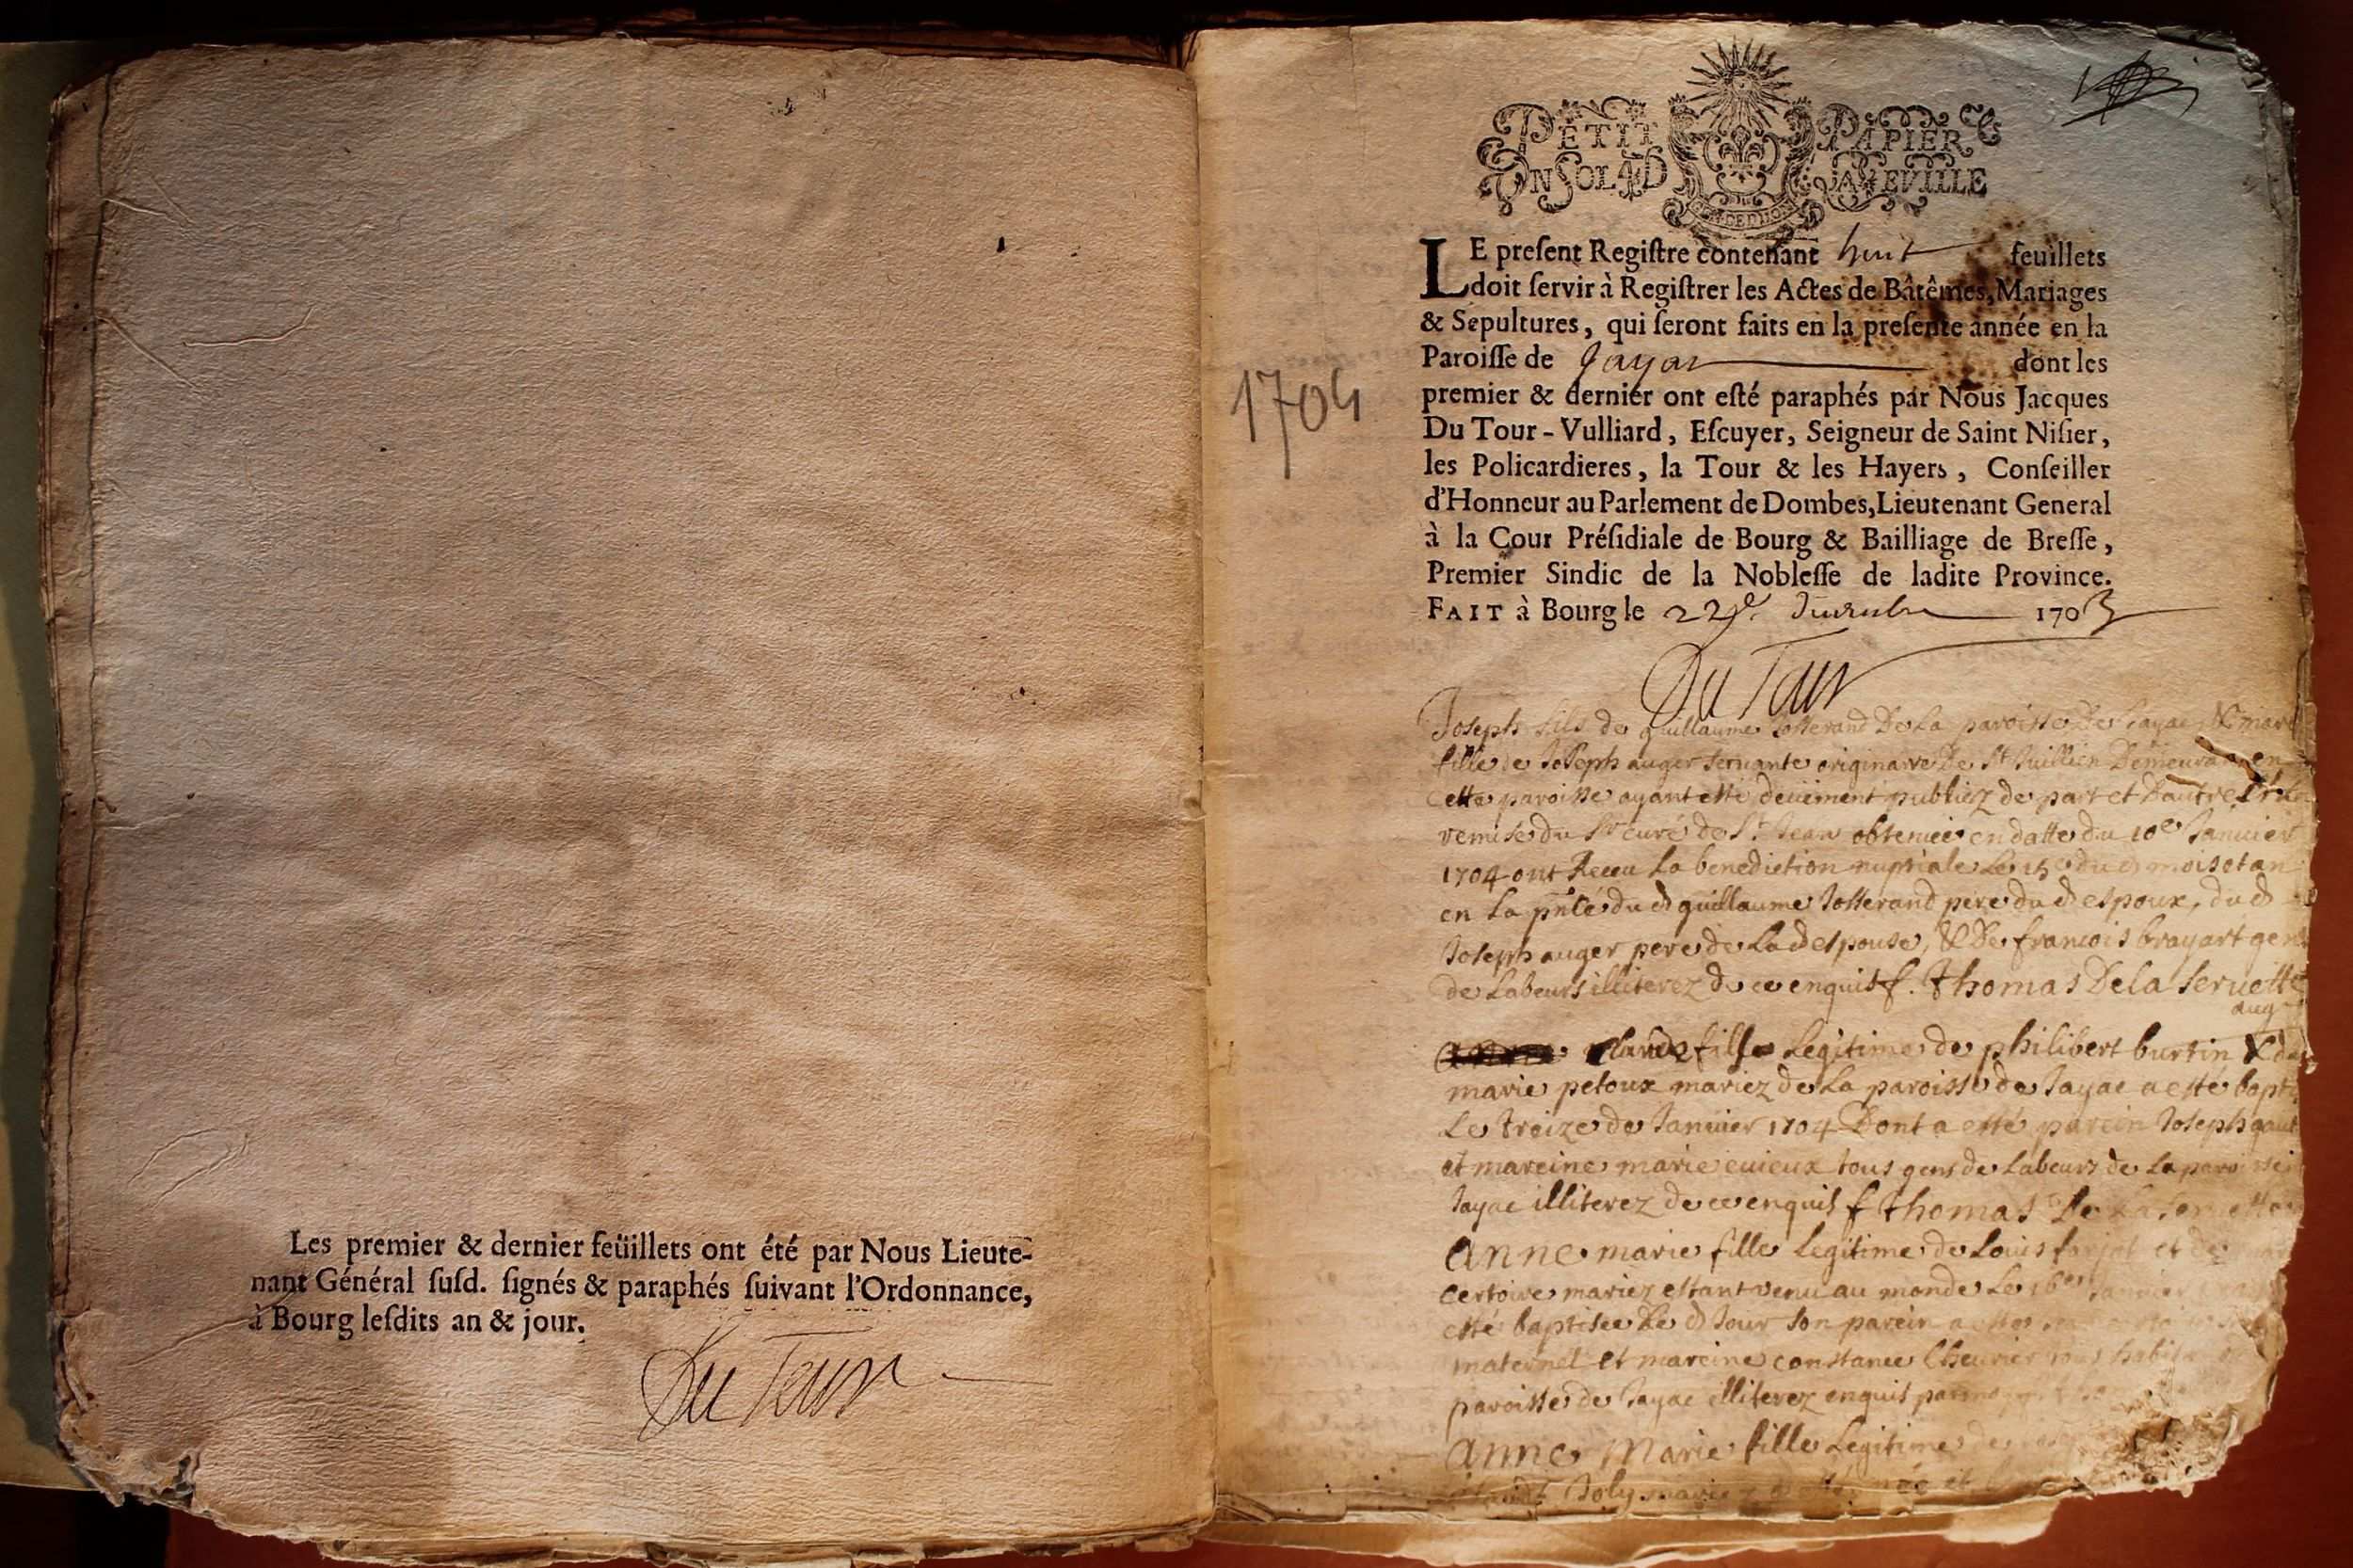 Les premier & dernier feüillets ont été par Nous Lieute-
nant Général ſuſd. ſignés & paraphés ſuivant l'Ordonnance,
à Bourg leſdits an & jour.
Du Tour
PETIT PAPIER
UN SOL 4 D LA FEVILLE
1704
LE preſent Regiſtre contenant huit feuillets
doit ſervir à Regiſtrer les Actes de Bâtêmes, Mariages
& Sepultures, qui ſeront faits en la preſente année en la
Paroiſſe de Jayac dont les
premier & dernier ont eſté paraphés par Nous Jacques
Du Tour-Vulliard, Eſcuyer, Seigneur de Saint Niſier,
les Policardieres, la Tour & les Hayers, Conſeiller
d'Honneur au Parlement de Dombes, Lieutenant General
à la Cour Préſidiale de Bourg & Bailliage de Breſſe,
Premier Sindic de la Nobleſſe de ladite Province.
FAIT à Bourg le 22e. 1703
Du Tour
Joseph fils de guillaume Josserand De La paroisse De Jayac &
fille de Joseph auger servante originaire de St Juillien Demeurant en
cette paroisse ayant esté deüement publiez de part et D'autre
remise du Sr curé de St Jean obtenüe en datte du 10e Januier
1704 ont Receu La benediction nuptiale Le 15e du d mois et an
en La pnté du d guillaume Josserand pere du d espoux, du d
Joseph auger pere de La d espouse, & De francois brayart gens
de Labeurs illiterez de ce enquis f. Thomas De la Seruette
aug
Claude fille Legitime de philibert burtin & de
marie petoux mariez de La paroisse de Jayac a esté bapt
Le treize de Januier 1704 Dont a esté parein Joseph
et mareine marie euieux tous gens de Labeurs de La paroisse
Jayac illiterez de ce enquis f Thomas De La Seruette
Anne marie fille Legitime de Louis et de
certoire mariez estant venu au monde Le 16e Januier
esté baptisée Le d Jour son parein a esté
maternel et mareine constance Cheurier
paroisse de Jayac illiterez enquis par moy
Anne Marie fille Legitime de
Joly mariez